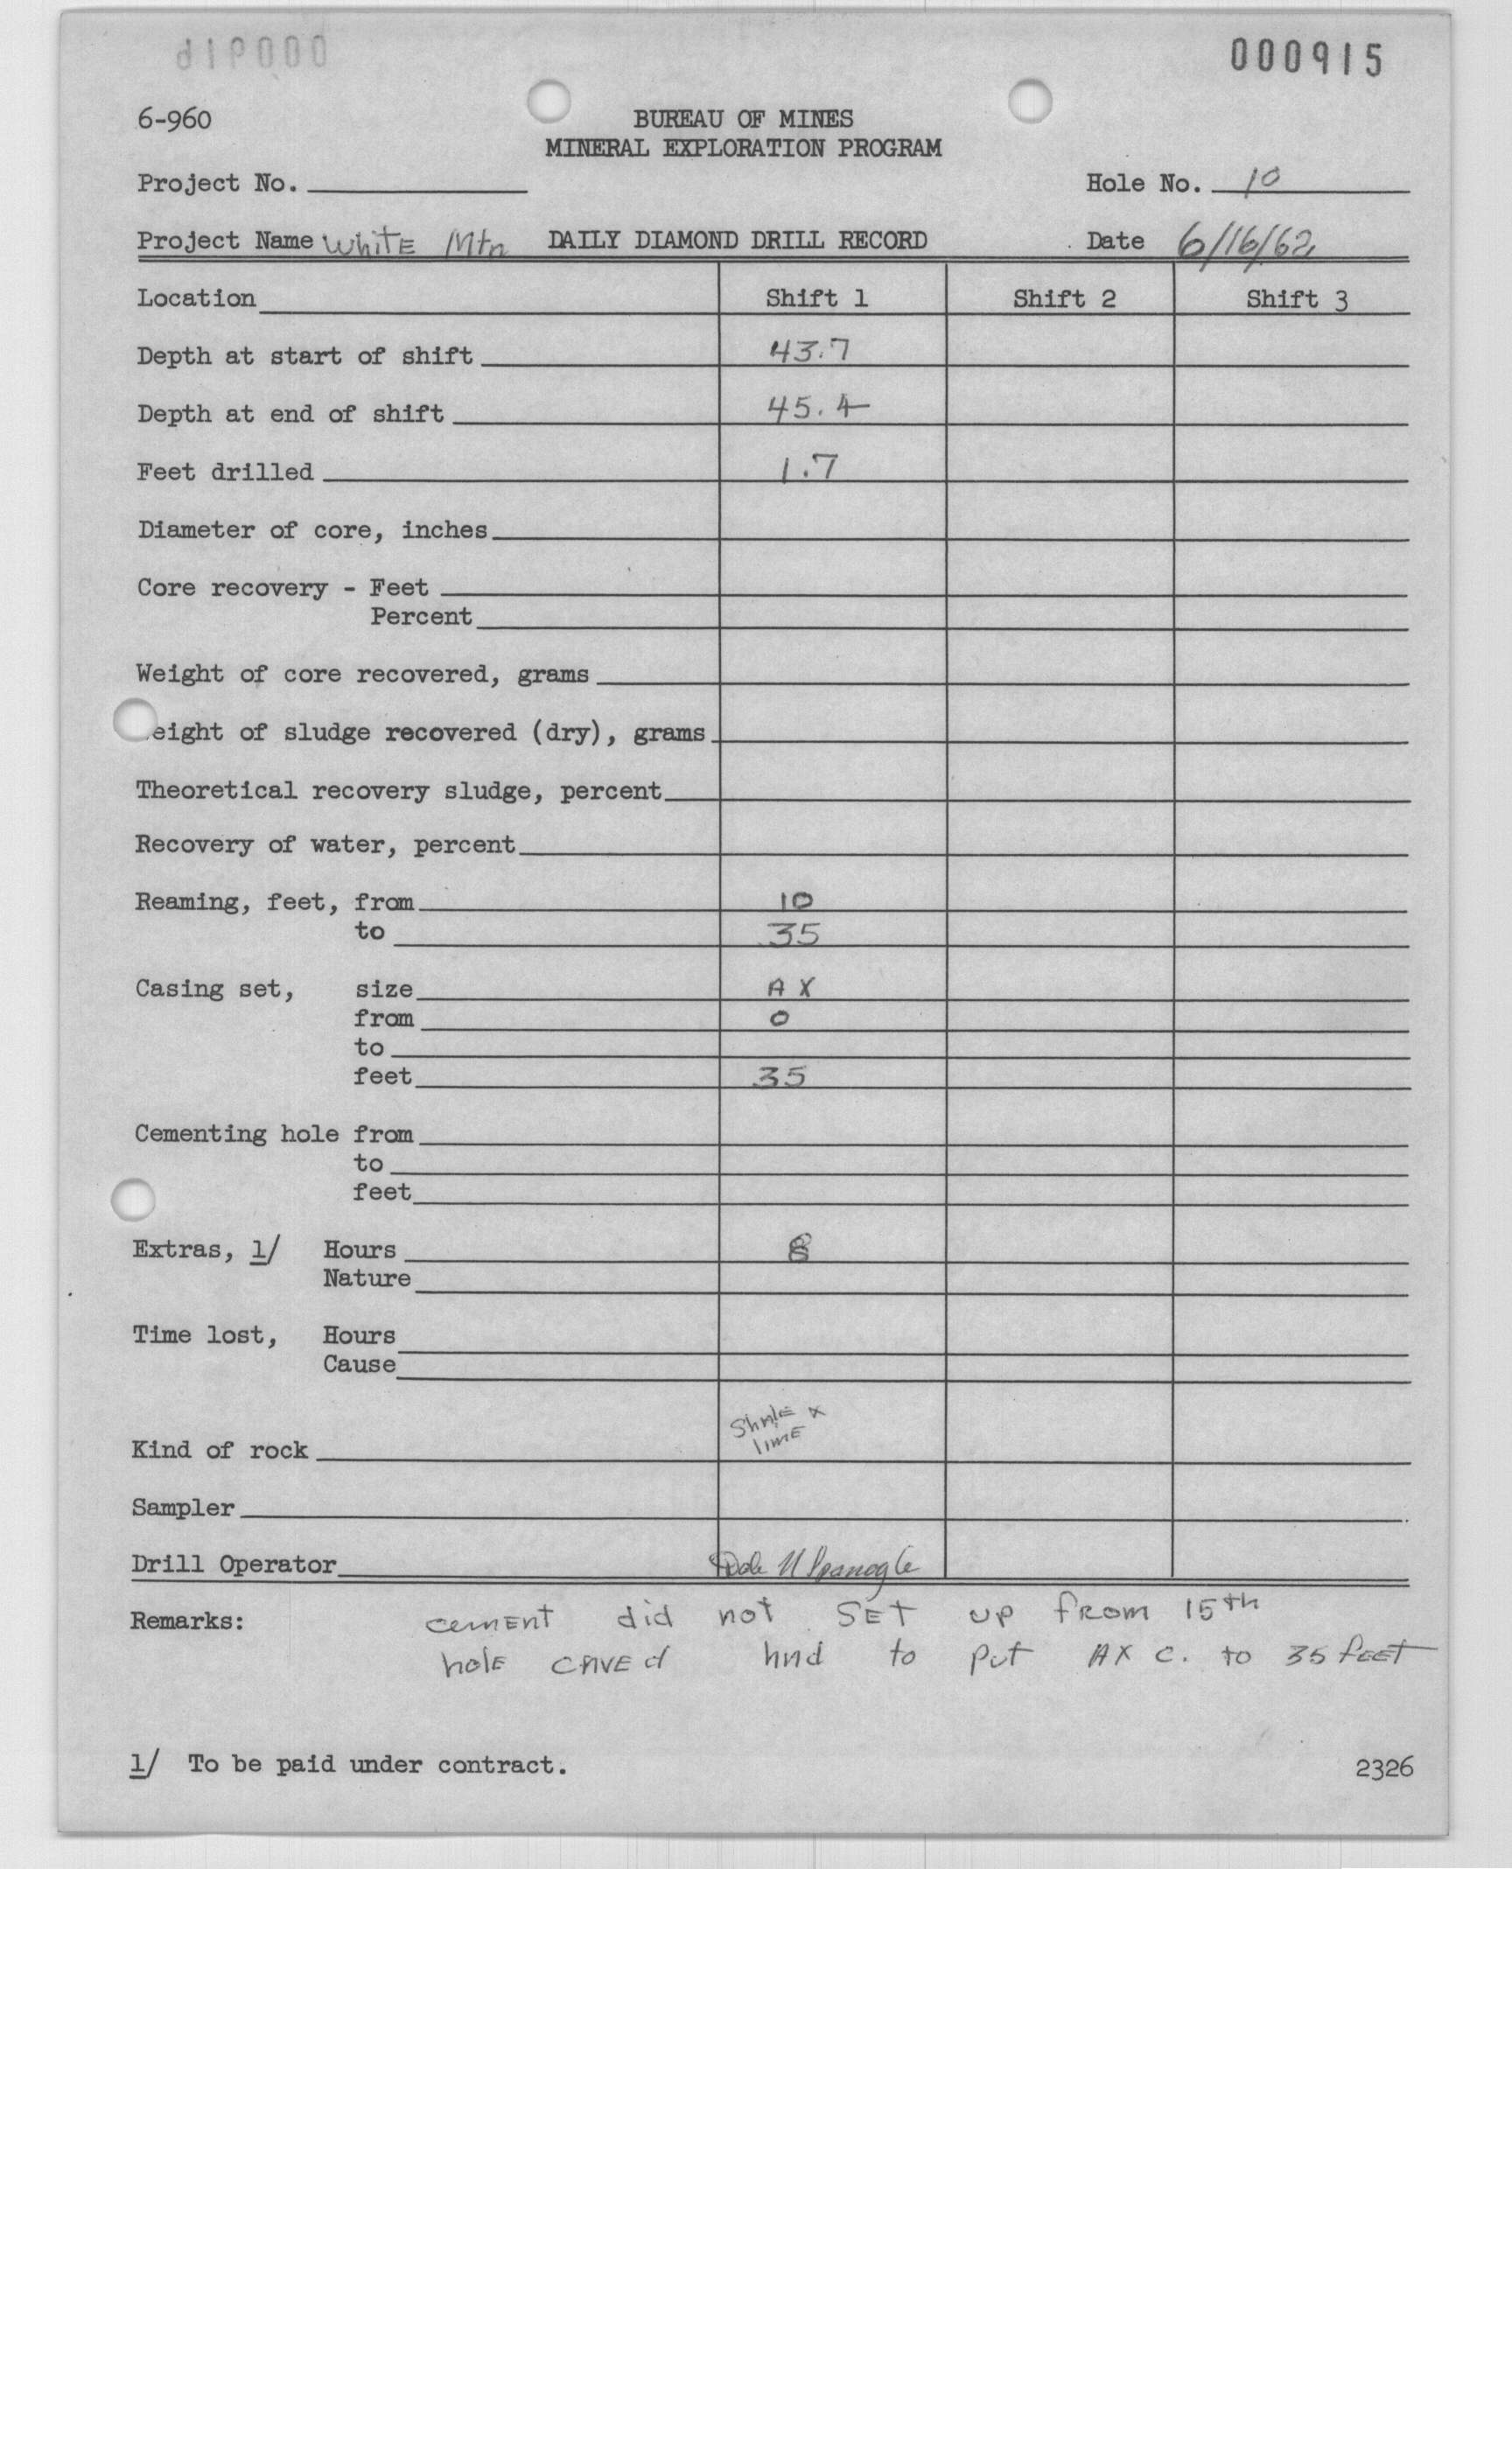 000915
6-960
BUREAU OF MINES
MINERAL EXPLORATION PROGRAM
Project No. Hole No. 10
Project Name White Mtn DAILY DIAMOND DRILL RECORD Date 6/16/62
Location Shift 1 Shift 2 Shift 3
Depth at start of shift 43.7
Depth at end of shift 45.4
Feet drilled 1.7
Diameter of core, inches
Core recovery - Feet
Percent
Weight of core recovered, grams
eight of sludge recovered (dry), grams
Theoretical recovery sludge, percent
Recovery of water, percent
Reaming, feet, from 10
to 35
Casing set, size AX
from 0
to
feet 35
Cementing hole from
to
feet
Extras, 1/ Hours 8
Nature
Time lost, Hours
Cause
Shale x
lime
Kind of rock
Sampler
Drill Operator Dale Spanogle
Remarks: cement did not SET up from 15th
hole caved had to put AX C. to 35 feet
1/ To be paid under contract. 2326